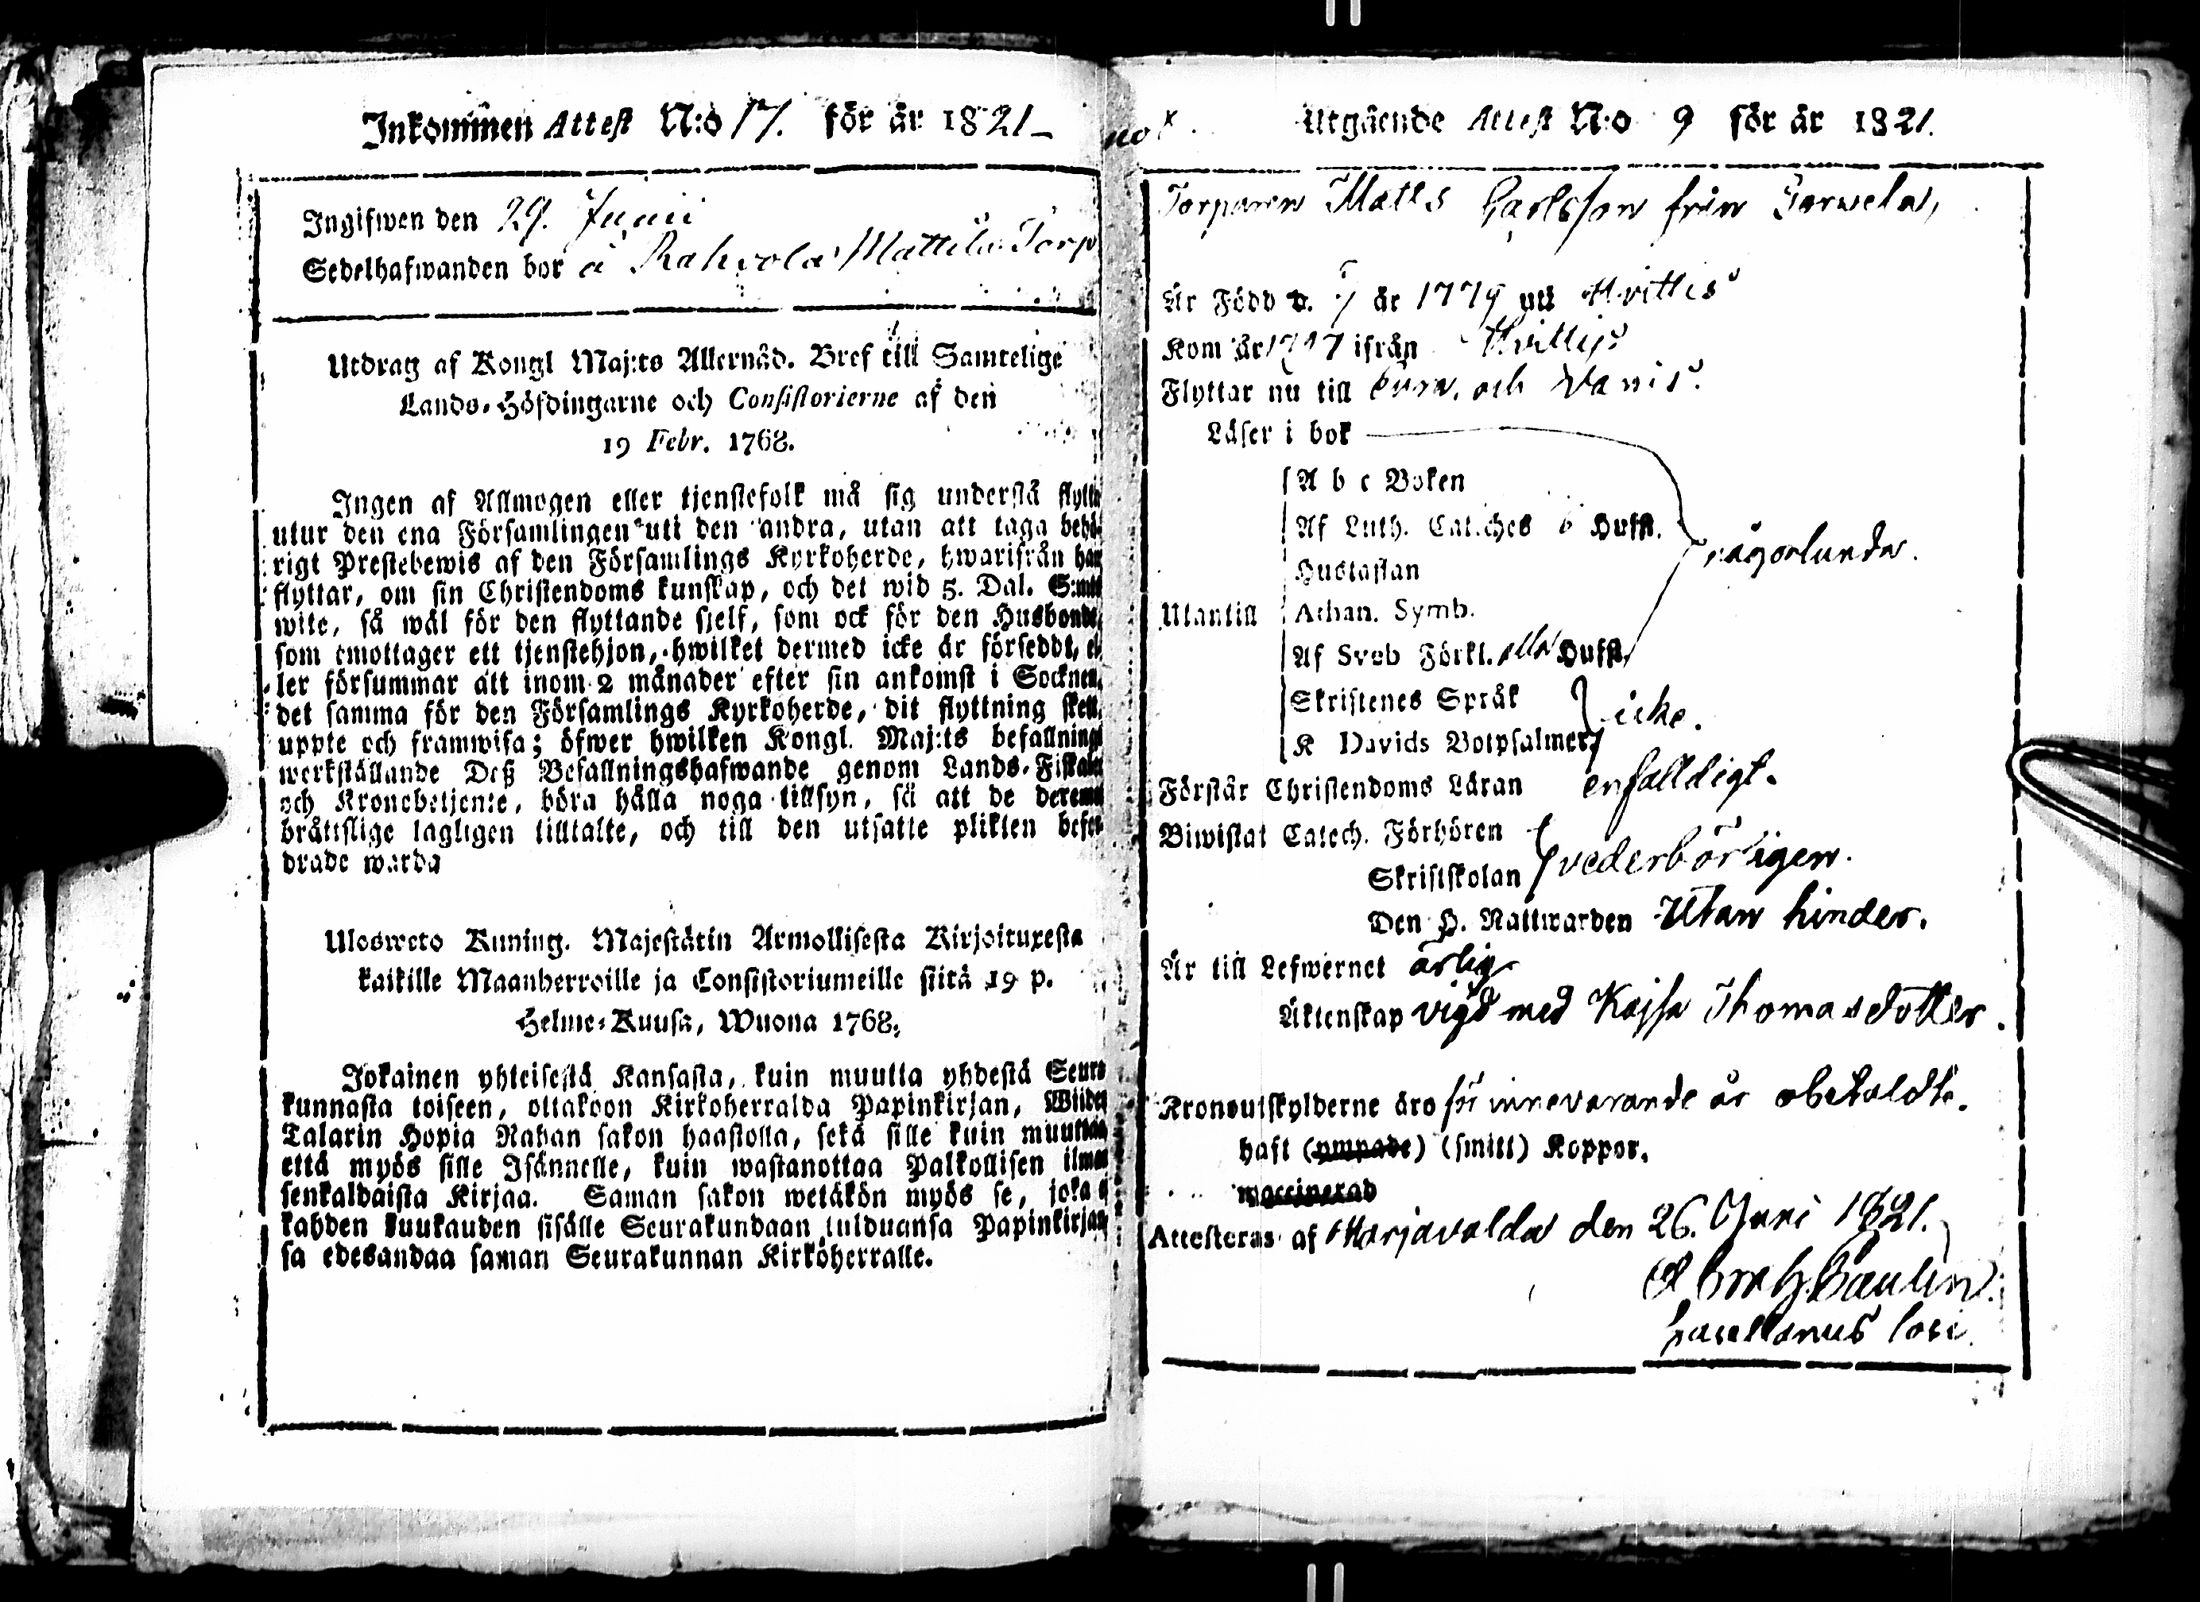 Inkommen Attest N:o 17. för år 1821
Ingifwen den 29. Junii
Sedelhafwanden bor å Rahvola Mattila Torp
Utdrag af Kongl Maj:ts Allernåd. Bref till Samtelige
Lands-Höfdingarne och Consistorierne af den
19 Febr. 1768.
Ingen af Allmogen eller tjenstefolk må sig understå flytta
utur den ena Församlingen uti den andra, utan att taga behö-
rigt Prestebewis af den Församlings Kyrkoherde, hwarifrån han
flyttar, om sin Christendoms kunskap, och det wid 5. Dal. S:mts
wite, så wäl för den flyttande sjelf, som ock för den Husbonde,
som emottager ett tjenstehjon, hwilket dermed icke är förseddt, el-
ler försummar att inom 2 månader efter sin ankomst i Socknen,
det samma för den Församlings Kyrkoherde, dit flyttning skett,
uppte och framwisa; öfwer hwilken Kongl. Maj:ts befallning
werkställande Deß Befallningshafwande genom Lands-Fiskaler
och Kronobetjente, böra hålla noga tillsyn, så att de deremot
bråttslige lagligen tilltalte, och till den utsatte plikten befor-
drade warda
Ulosweto Kuning. Majestätin Armollisesta Kirjoituxesta
kaikille Maanherroille ja Consistoriumeille siitä 19 p.
Helme-Kuusa, Wuona 1768.
Jokainen yhteisestä Kansasta, kuin muutta yhdestä Seura
kunnasta toiseen, ottakoon Kirkoherralda Papinkirjan, Wiiden
Talarin Hopia Rahan sakon haastolla, sekä sille kuin muuttaa
että myös sille Isännelle, kuin wastanottaa Palkollisen ilman
senkaldaista Kirjaa. Saman sakon wetäkön myös se, joka ei
kahden kuukauden sisälle Seurakundaan tulduansa Papinkirjan
sa edesandaa saman Seurakunnan Kirkoherralle.
Utgående Attest N:o 9 för år 1821.
Torparen Matts Carlsson från
Är Född d. år 1779 uti Hvittis
Kom år ifrån Hvittis
Flyttar nu till Eura. och
Läser i bok
A b c Boken
Af Luth. Catches 6 Hufst.
någorlunda.
Hustaflan
Utantill Athan. Symb.
Af Sveb Förkl. alla Hufst.
Skriftenes Språk
icke.
K Davids Botpsalmer
Förstår Christendoms Läran enfalldigt.
Biwistat Catech. Förhören
vederbörligen.
Skriftskolan
Den H. Nattwarden Utan hinder.
Är till Lefwernet ärlig
Äktenskap vigd med Kajsa Thomasdotter.
Kronoutskylderne äro för innevarande år obetaldte.
haft (ympade) (smitt) Koppor.
waccinerad
Attesteras af Harjavalda den 26. Juni 1821.
Sacellanus loci.